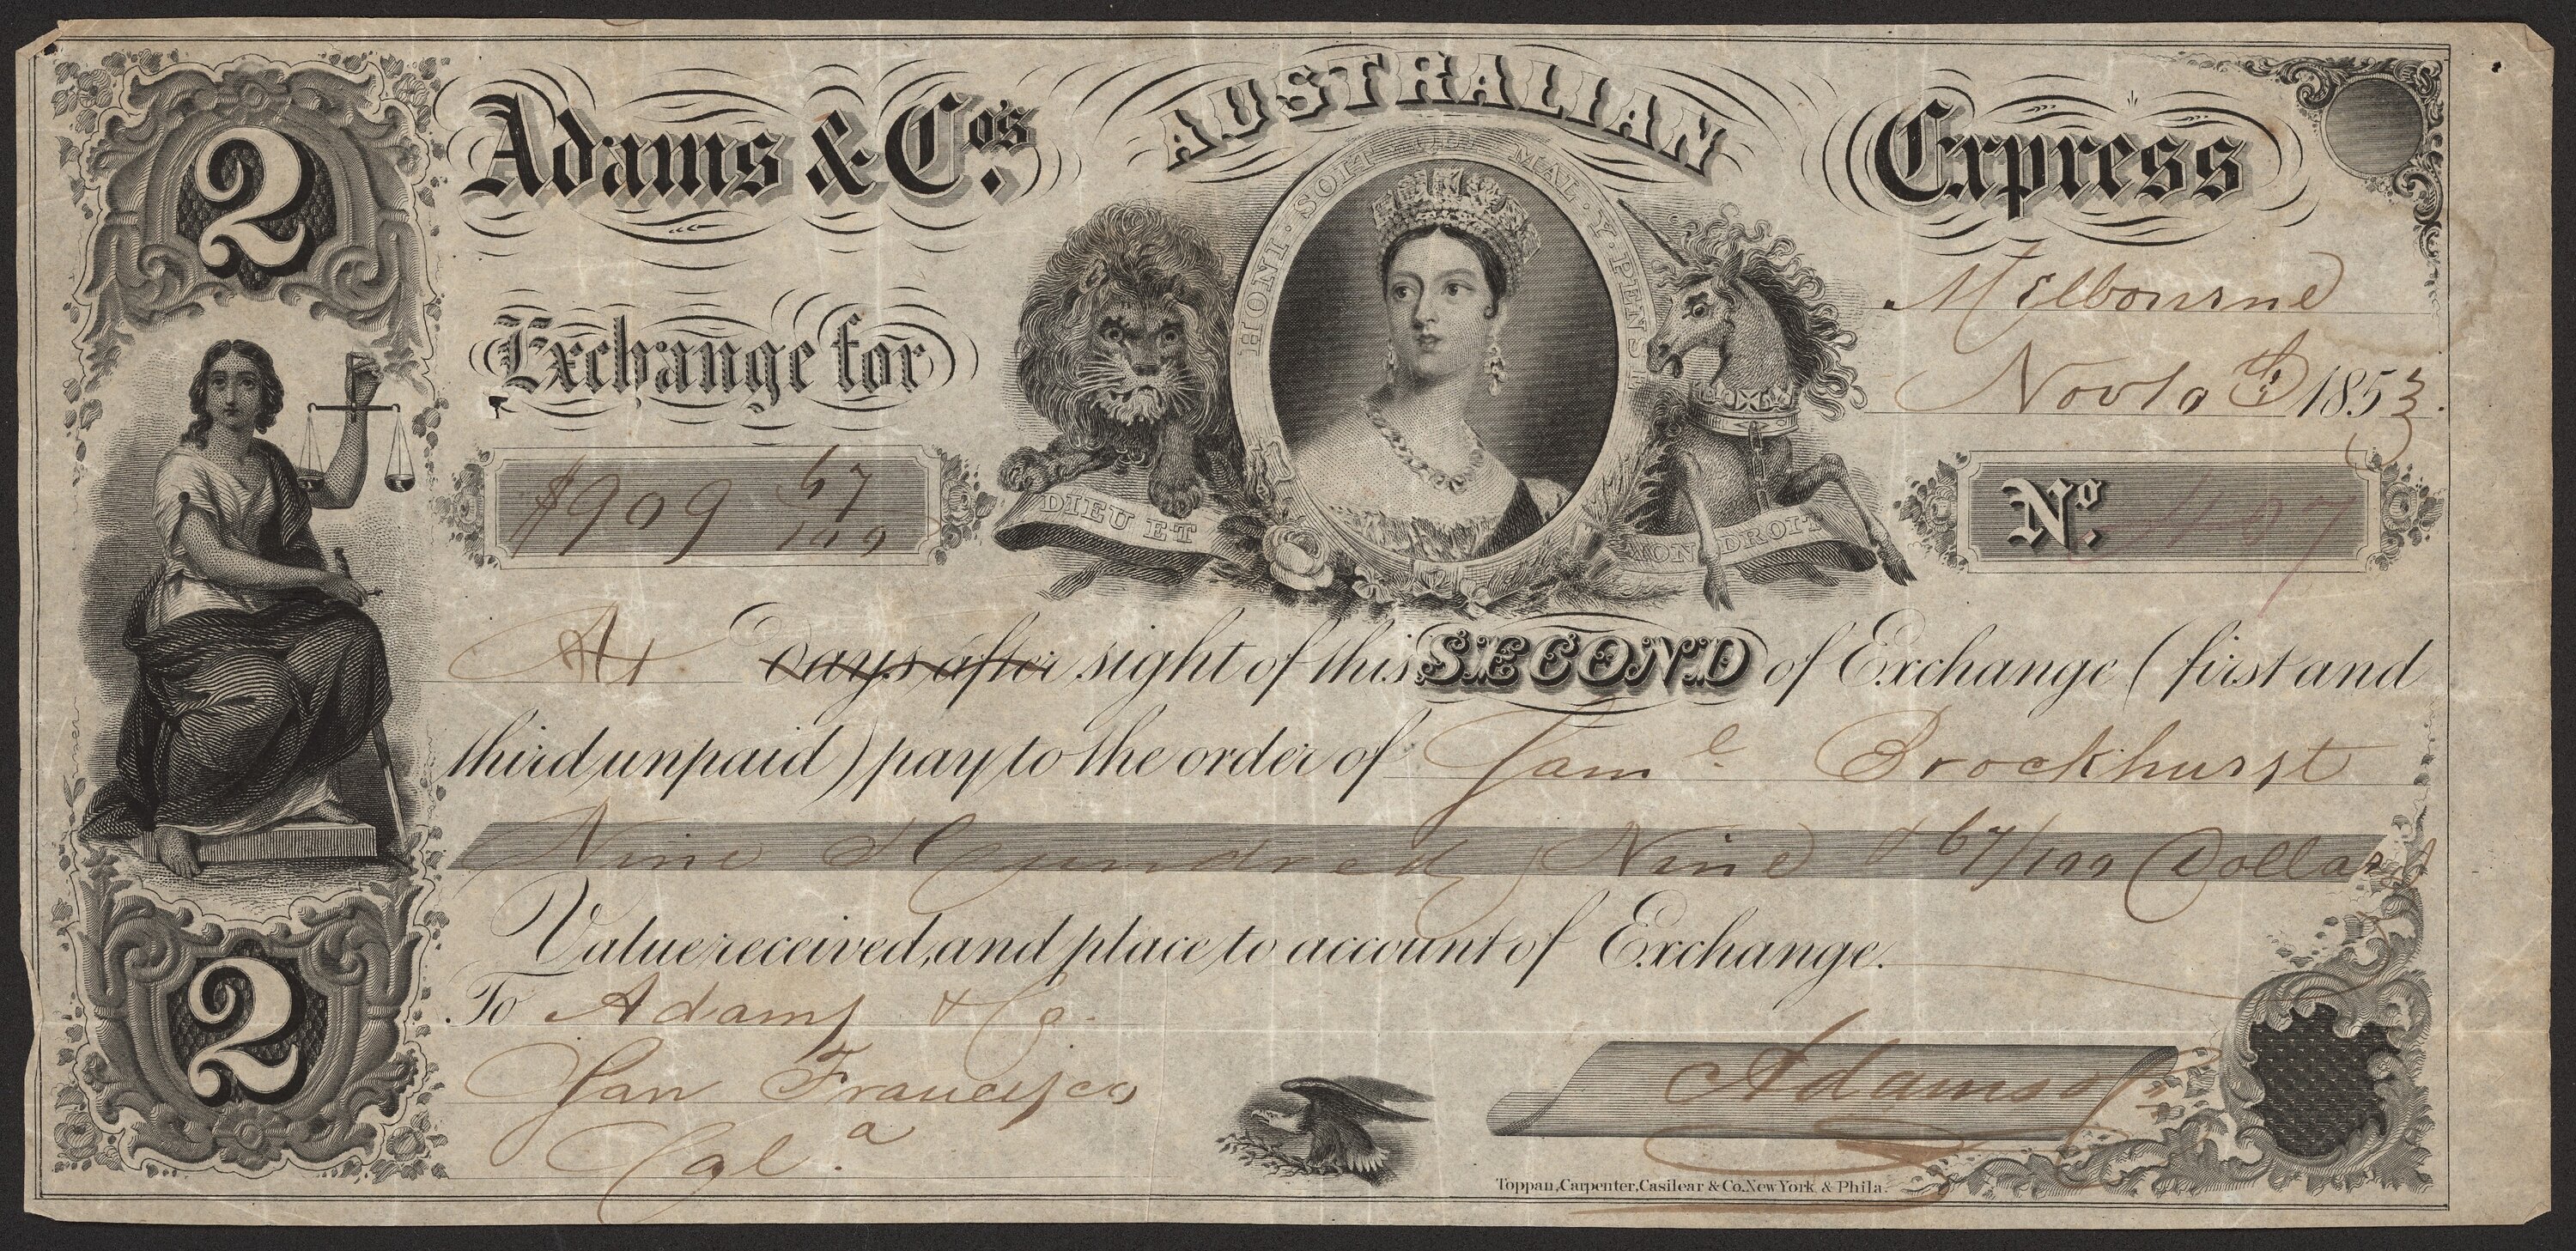 2
Adams & Co's. AUSTRALIAN Express
HONI · SOIT · QUI · MAL · Y · PENSE
Melbourne
Exchange for
Nov 10th 1853.
$909 67/100
DIEU ET MON DROIT
No. 187
At Days after sight of this SECOND of Exchange (first and
third unpaid) pay to the order of Saml Brockhurst
Nine Hundred Nine & 67/100 Dollars
Value received, and place to account of Exchange.
2
To Adams & Co.
San Francisco
Cal.a
Adams & Co
Toppan, Carpenter, Casilear & Co. New York & Phila.